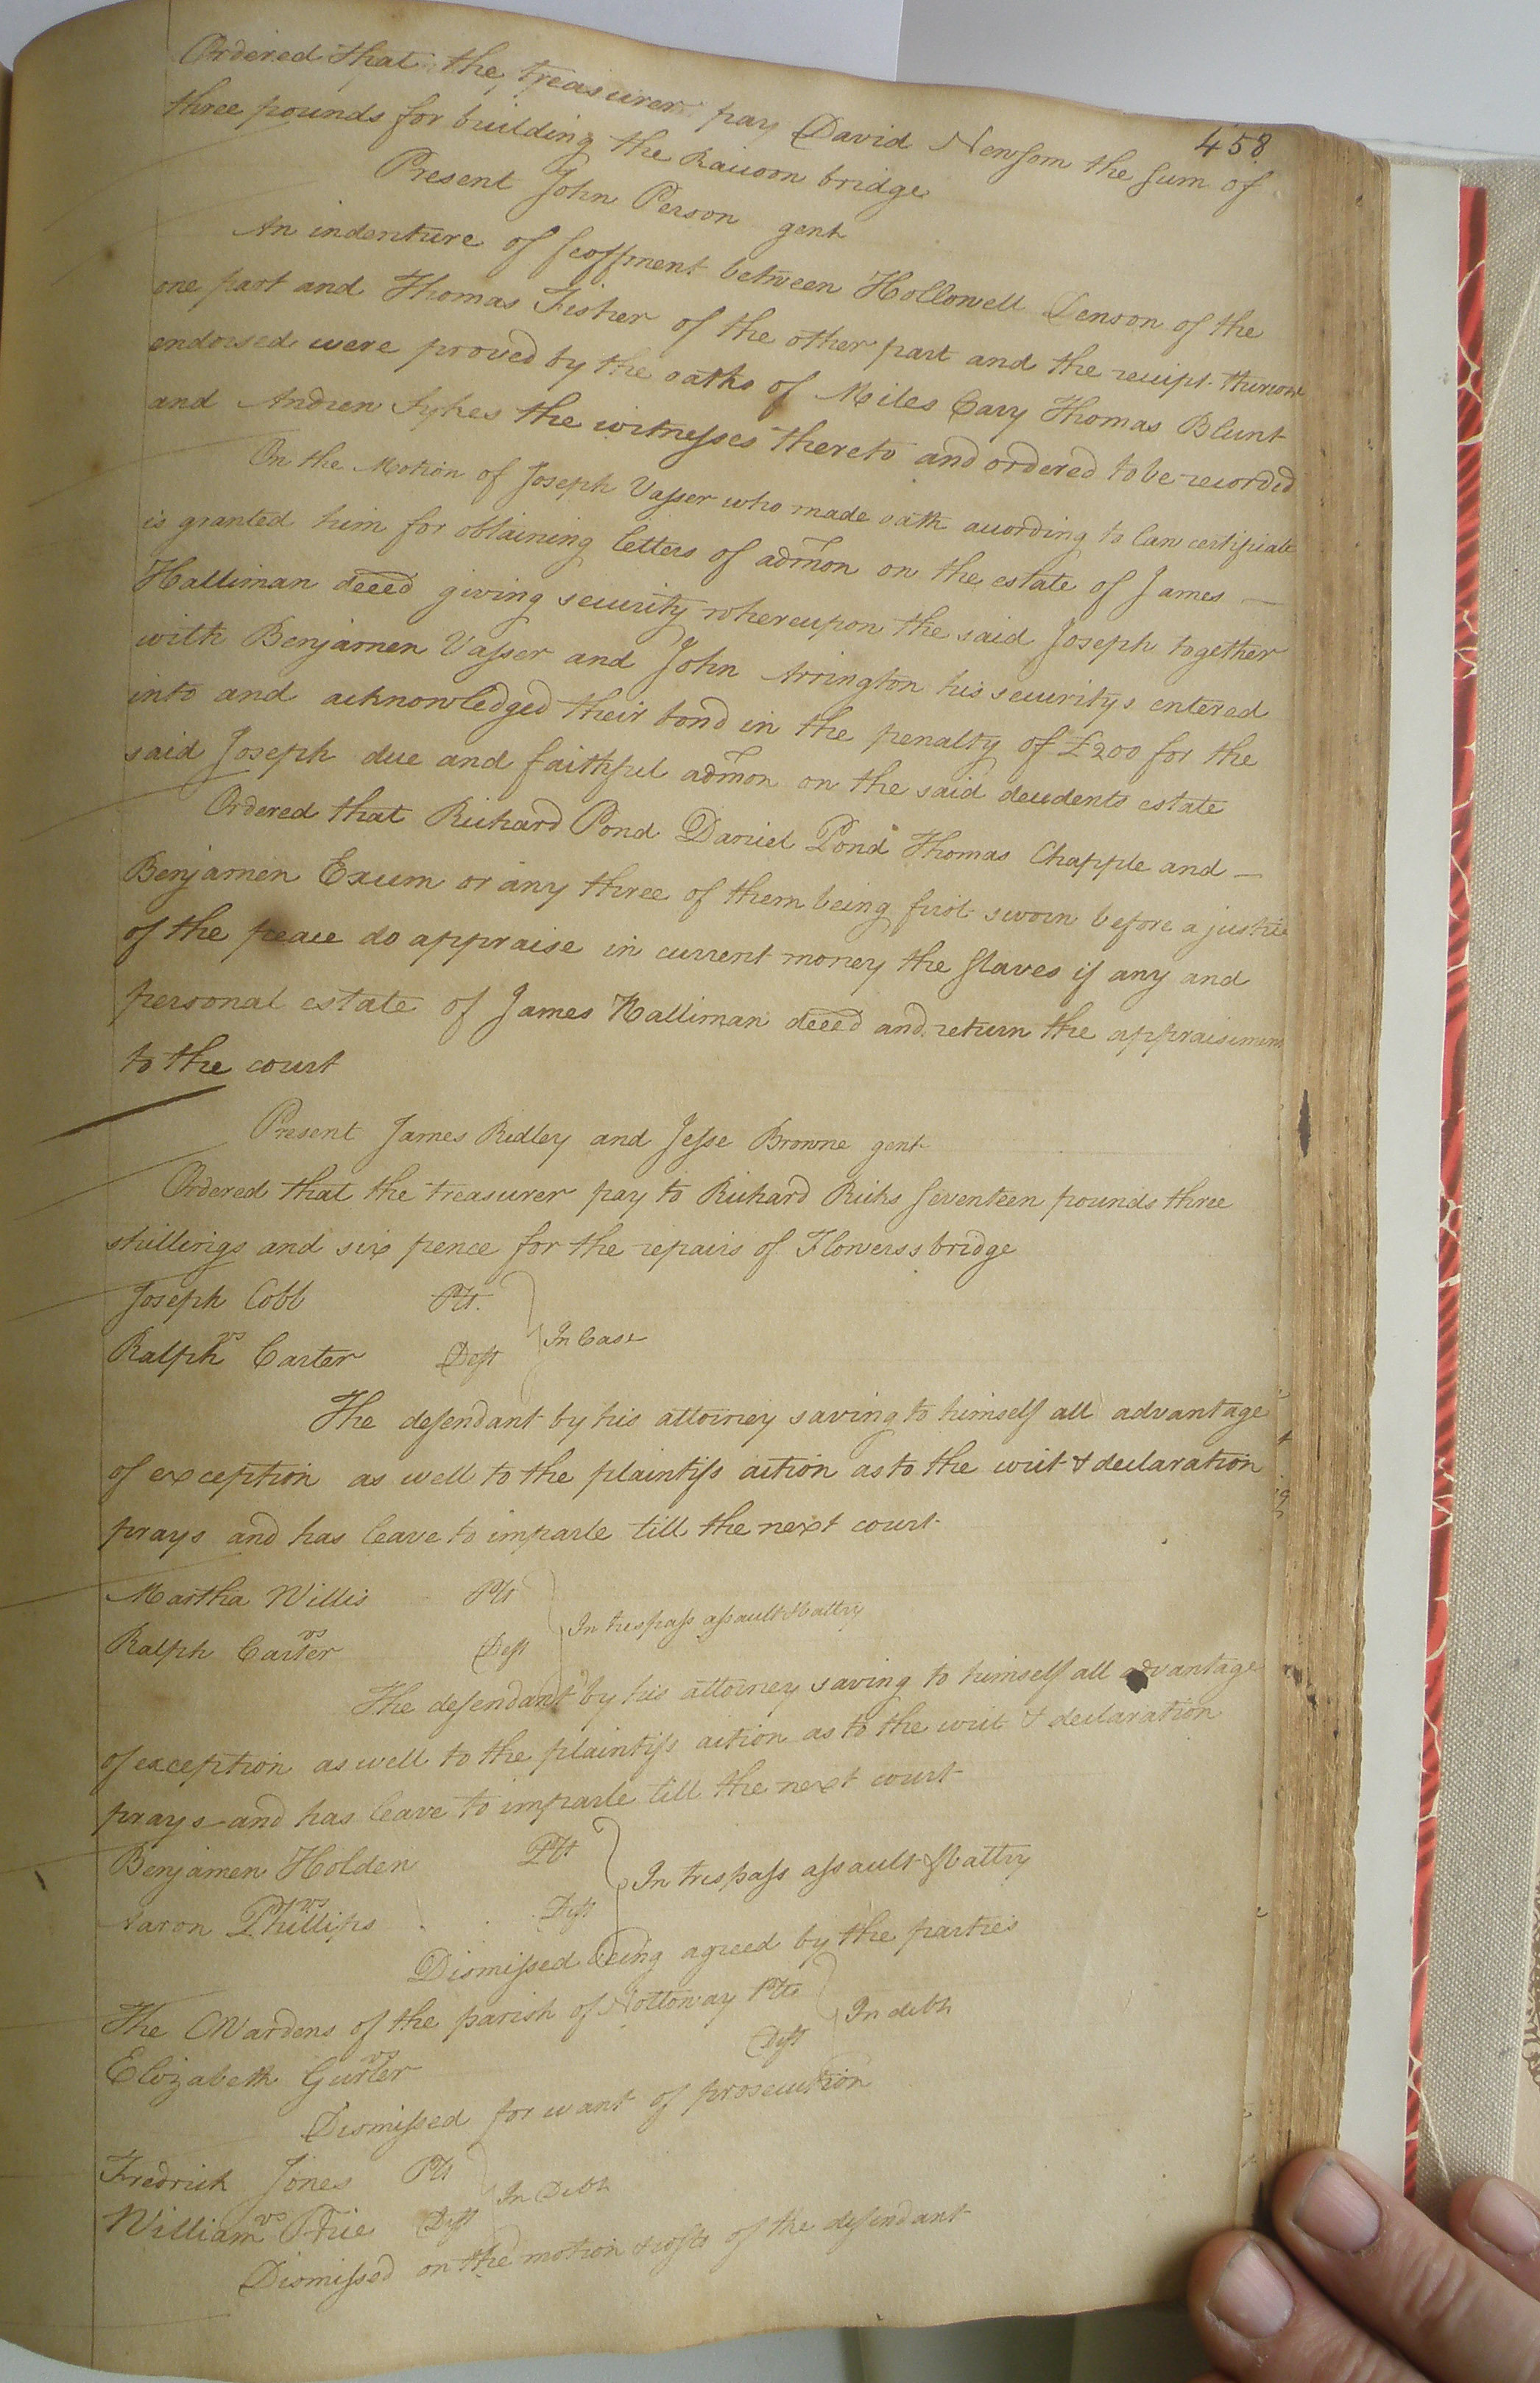 458
Ordered that the treasurer pay David Newsom the sum of
three pounds for building the Racoon bridge
Present John Person gent
An indenture of feoffment between Hollowell Denson of the
one part and Thomas Fisher of the other part and the receipt thereon
endorsed were proved by the oaths of Miles Cary Thomas Blunt
and Andrew Sykes the witnesses thereto and ordered to be recorded
On the Motion of Joseph Vasser who made oath according to law certificate
is granted him for obtaining letters of admon on the estate of James —
Halliman deced giving security whereupon the said Joseph together
with Benjamen Vasser and John Arrington his securitys entered
into and acknowledged their bond in the penalty of £200 for the
said Joseph due and faithful admon on the said decedents estate
Ordered that Richard Pond Daniel Pond Thomas Chapple and —
Benjamen Exum or any three of them being first sworn before a justice
of the peace do appraise in current money the slaves if any and
personal estate of James Halliman deced and return the appraisement
to the court
Present James Ridley and Jesse Browne gent
Ordered that the treasurer pay to Richard Ricks seventeen pounds three
shillings and six pence for the repairs of Flowerss bridge
Joseph Cobb Plt.
vs In Case
Ralph Carter Deft
The defendant by his attorney saving to himself all advantage
of exception as well to the plaintifs action as to the writ & declaration
prays and has leave to imparle till the next court
Martha Willis Plt
vs In trespass assault & battry
Ralph Carter Deft
The defendant by his attorney saving to himself all advantage
of exception as well to the plaintifs action as to the writ & declaration
prays and has leave to imparle till the next court
Benjamen Holden Plt
vs In trespass assault & battry
Aaron Phillips Deft
Dismissed being agreed by the parties
The CWardens of the parish of Nottoway Plts
vs In debt
Elizabeth Gurler Deft
Dismissed for want of prosecution
Fredrick Jones Plt
vs In Debt
William Deft
Dismissed on the motion & costs of the defendant